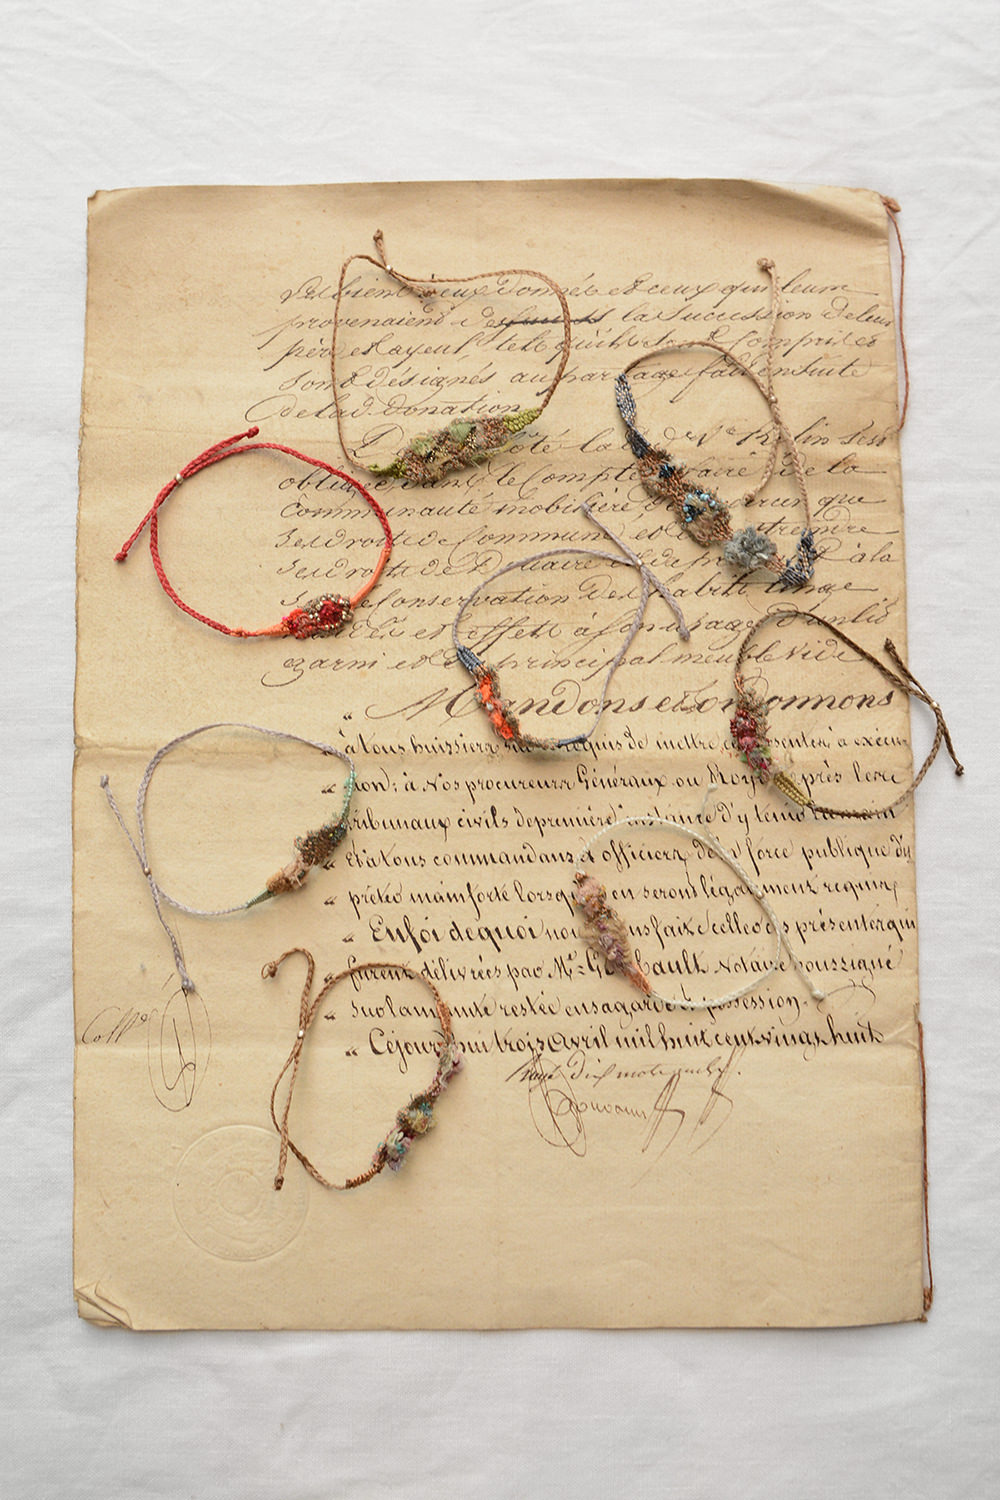 donnés et ceux qui leur
provenaient de la succession de leur
père et ayeul, tels qu'ils sont compris et
sont désignés au partage fait ensuite
de lad. donation
côté la de Ve
obligée, dans le Compte de la
communauté mobilière, que
ses droits de Commune, et
ses droits de à la
Conservation des habits linge
et effets à son usage d'un lit
garni et principal meuble vide
" Mandons et ordonnons
" à tous huissiers sur ce requis de mettre ces présentes à exécu
" tion; à nos procureurs Généraux ou Roy près les
" tribunaux civils de première instance d'y tenir la main
" et à tous commandans et officiers de la force publique d'y
" prêter mainforte lorsqu' en seront légalement requis,
" Enfoi de quoi nous fait sceller ces présentes qui
" furent délivrées par Me Notaire soussigné
" sur la minute restée en sa garde et possession.
" Cejourd'hui trois Avril mil huit cent vingt huit
Rayé dix mots nuls.